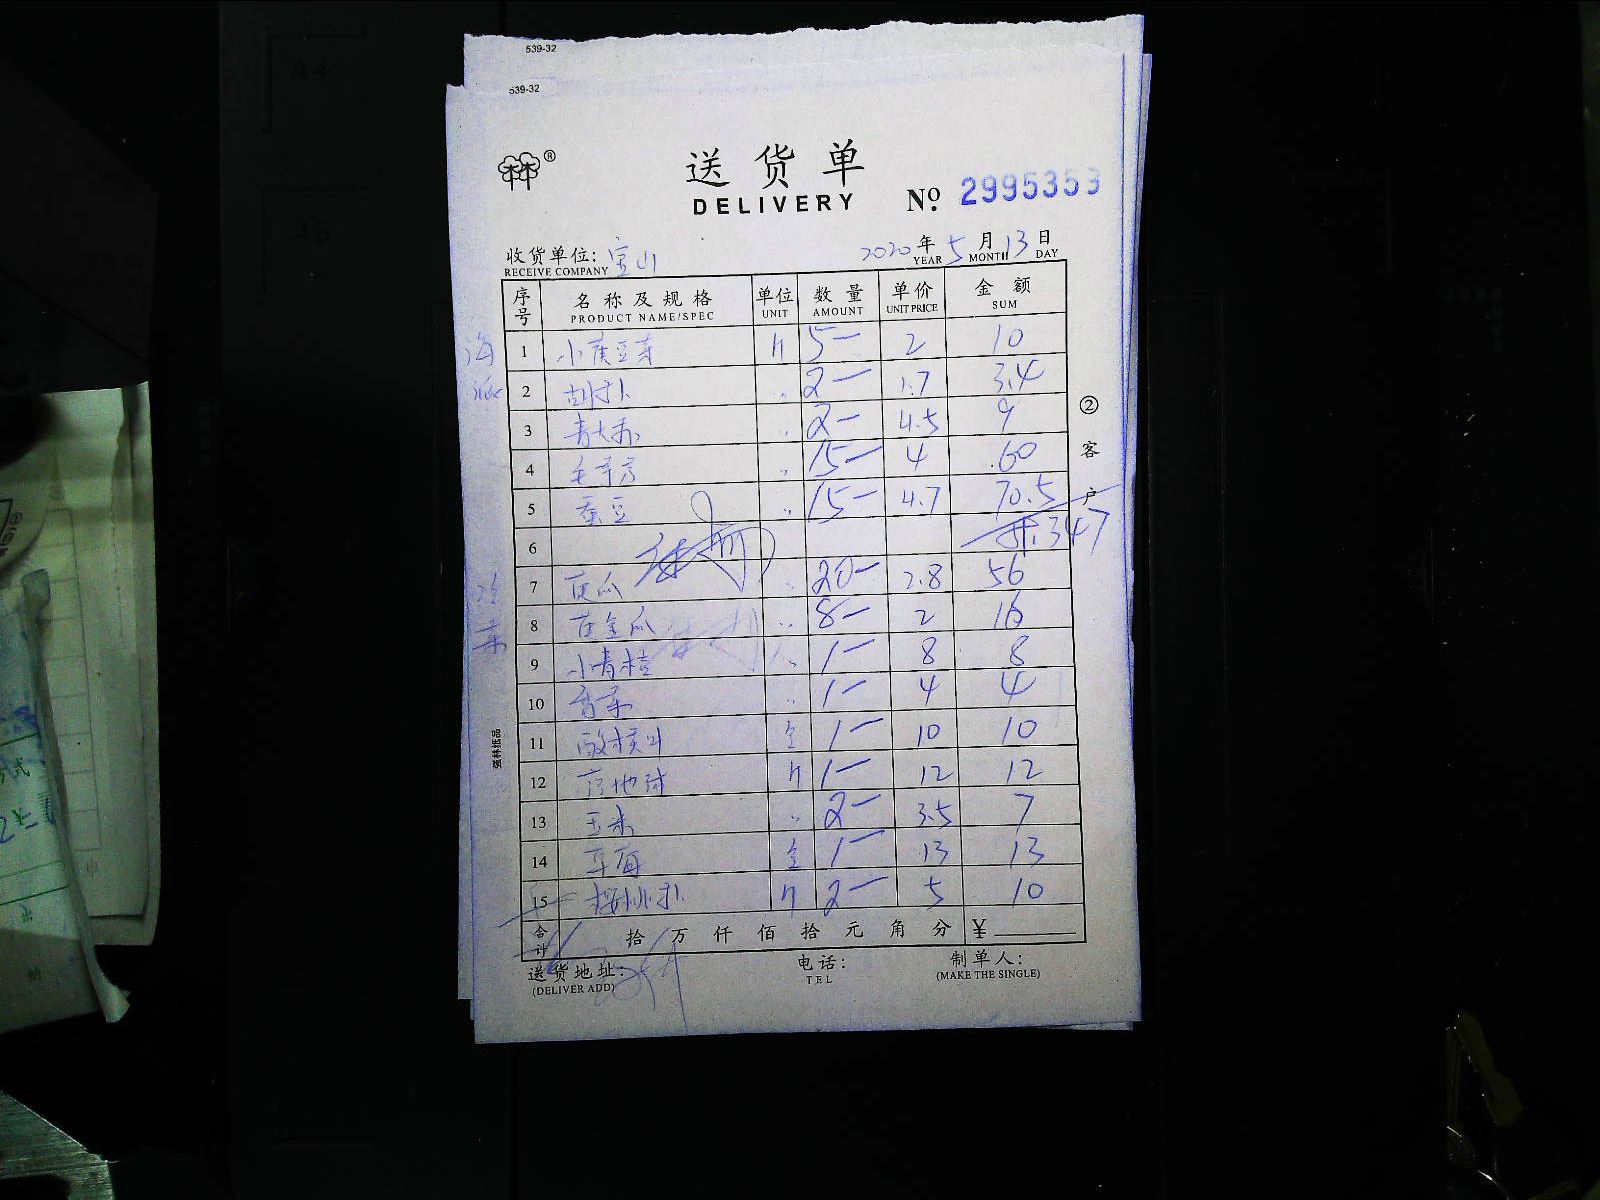 539-32
539-32
送货单
DELIVERY
№ 2995353
收货单位: 宝山
RECEIVE COMPANY
2020 年 5 月 13 日
YEAR MONTH DAY
序号 名称及规格 单位 数量 单价 金额
PRODUCT NAME/SPEC UNIT AMOUNT UNIT PRICE SUM
1 小黄豆芽 斤 5- 2 10
2 胡卜 〃 2- 1.7 3.4
3 青大赤 〃 2- 4.5 9
4 毛芋艿 〃 15- 4 60
5 蚕豆 〃 15- 4.7 70.5
6 347
7 瓜 〃 20- 2.8 56
8 黄金瓜 〃 8- 2 16
9 小青桔 〃 1- 8 8
10 香菜 〃 1- 4 4
11 酸模叶 盒 1- 10 10
12 地球 斤 1- 12 12
13 玉米 〃 2- 3.5 7
14 草莓 盒 1- 13 13
15 樱桃卜 斤 2- 5 10
合计 拾 万 仟 佰 拾 元 角 分 ¥
送货地址:
(DELIVER ADD)
电话:
TEL
制单人:
(MAKE THE SINGLE)
②客户
强林纸品